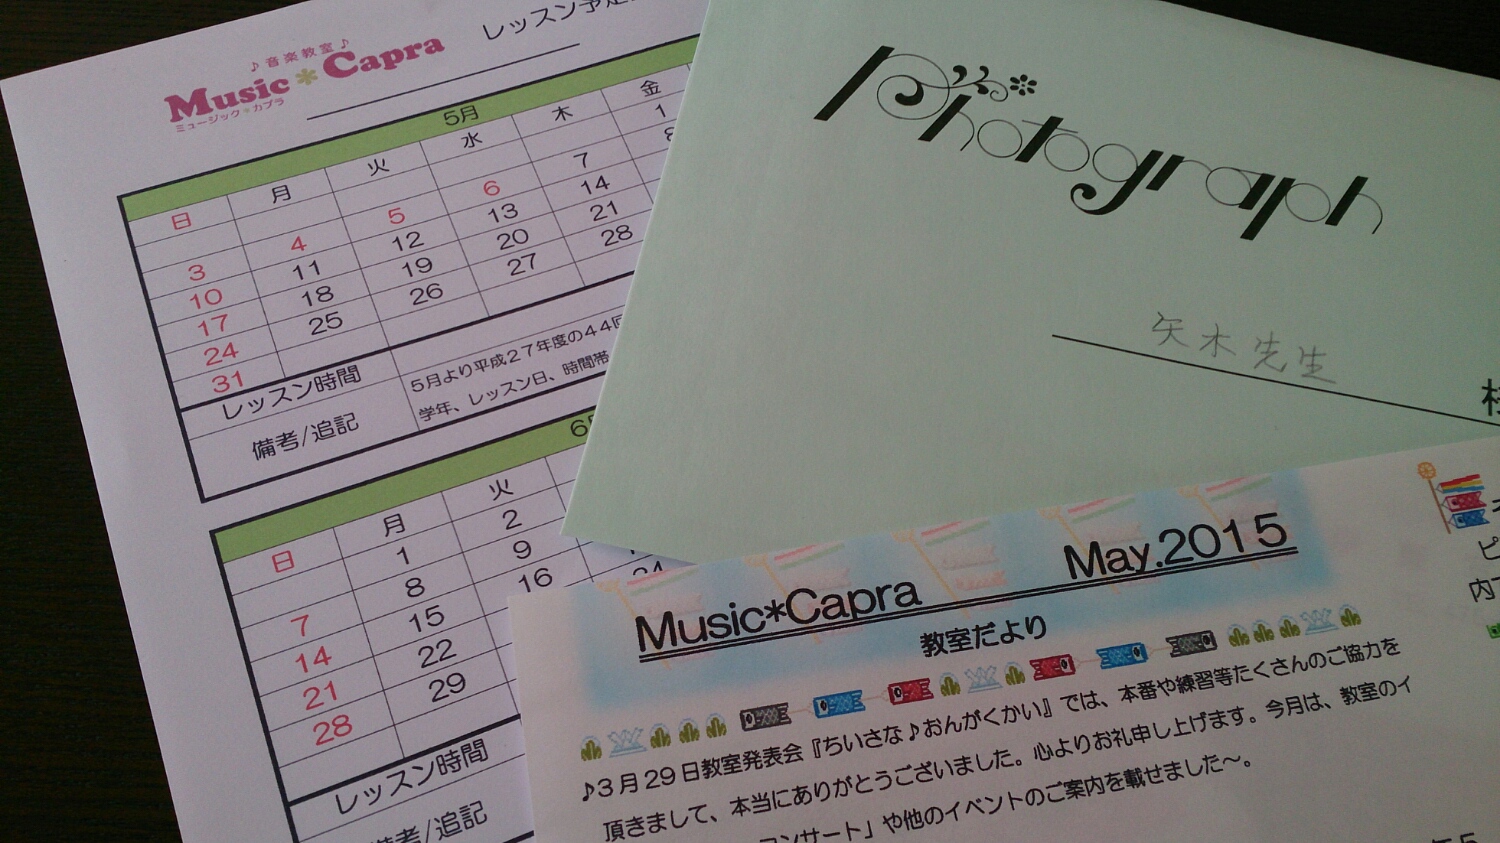 ♪音楽教室♪
Music*Capra
ミュージック*カプラ
レッスン予定
5月
日 月 火 水 木 金
1
3 4 5 6 7 8
10 11 12 13 14
17 18 19 20 21
24 25 26 27 28
31
レッスン時間
備考/追記
5月より平成27年度の44回
学年、レッスン日、時間帯
6月
日 月 火
1 2
7 8 9
14 15 16
21 22
28 29
レッスン時間
備考/追記
Photograph
矢木先生
Music*Capra May.2015
教室だより
♪3月29日教室発表会『ちいさな♪おんがくかい』では、本番や練習等たくさんのご協力を
頂きまして、本当にありがとうございました。心よりお礼申し上げます。今月は、教室のイ
コンサート」や他のイベントのご案内を載せました〜。
ピ
内